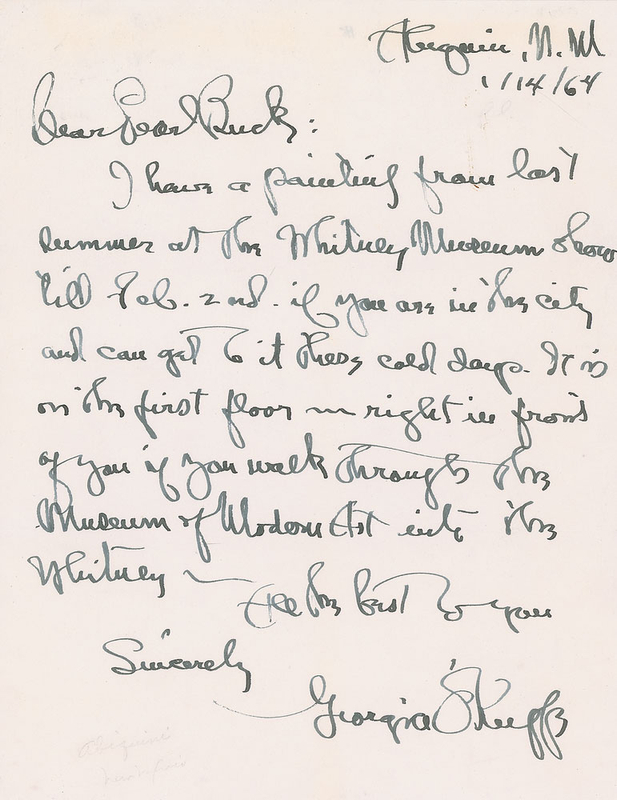 Abiquiu, N.M
1/14/64
Dear Pearl Buck:
I have a painting from last
summer at the Whitney Museum show
till Feb. 2nd. if you are in the city
and can get to it these cold days. It is
on the first floor in right in front
of you if you walk through the
Museum of Modern Art into the
Whitney —
All the best to you
Sincerely
Georgia O'Keeffe
Abiquiu